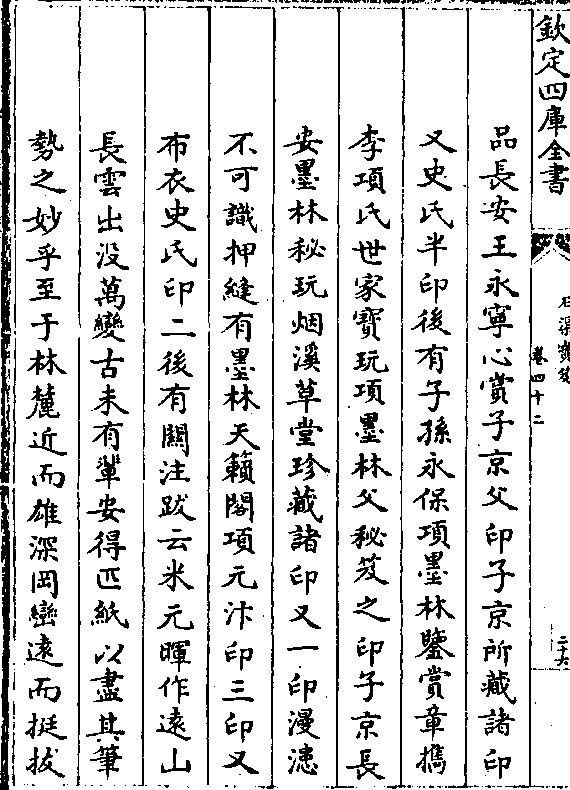 欽定四庫全書
石渠寶笈
卷四十二
二十六
品長安王永寧心賞子京父印子京所藏諸印
又史氏半印後有子孫永保項墨林鑒賞章檇
李項氏世家寶玩項墨林父秘笈之印子京長
安墨林秘玩烟溪草堂珍藏諸印又一印漫漶
不可識押縫有墨林天籟閣項元汴印三印又
布衣史氏印二後有闗注跋云米元暉作逺山
長雲出没萬變古未有輩安得匹紙以盡其筆
勢之妙乎至于林麓近而雄深岡巒逺而挺拔